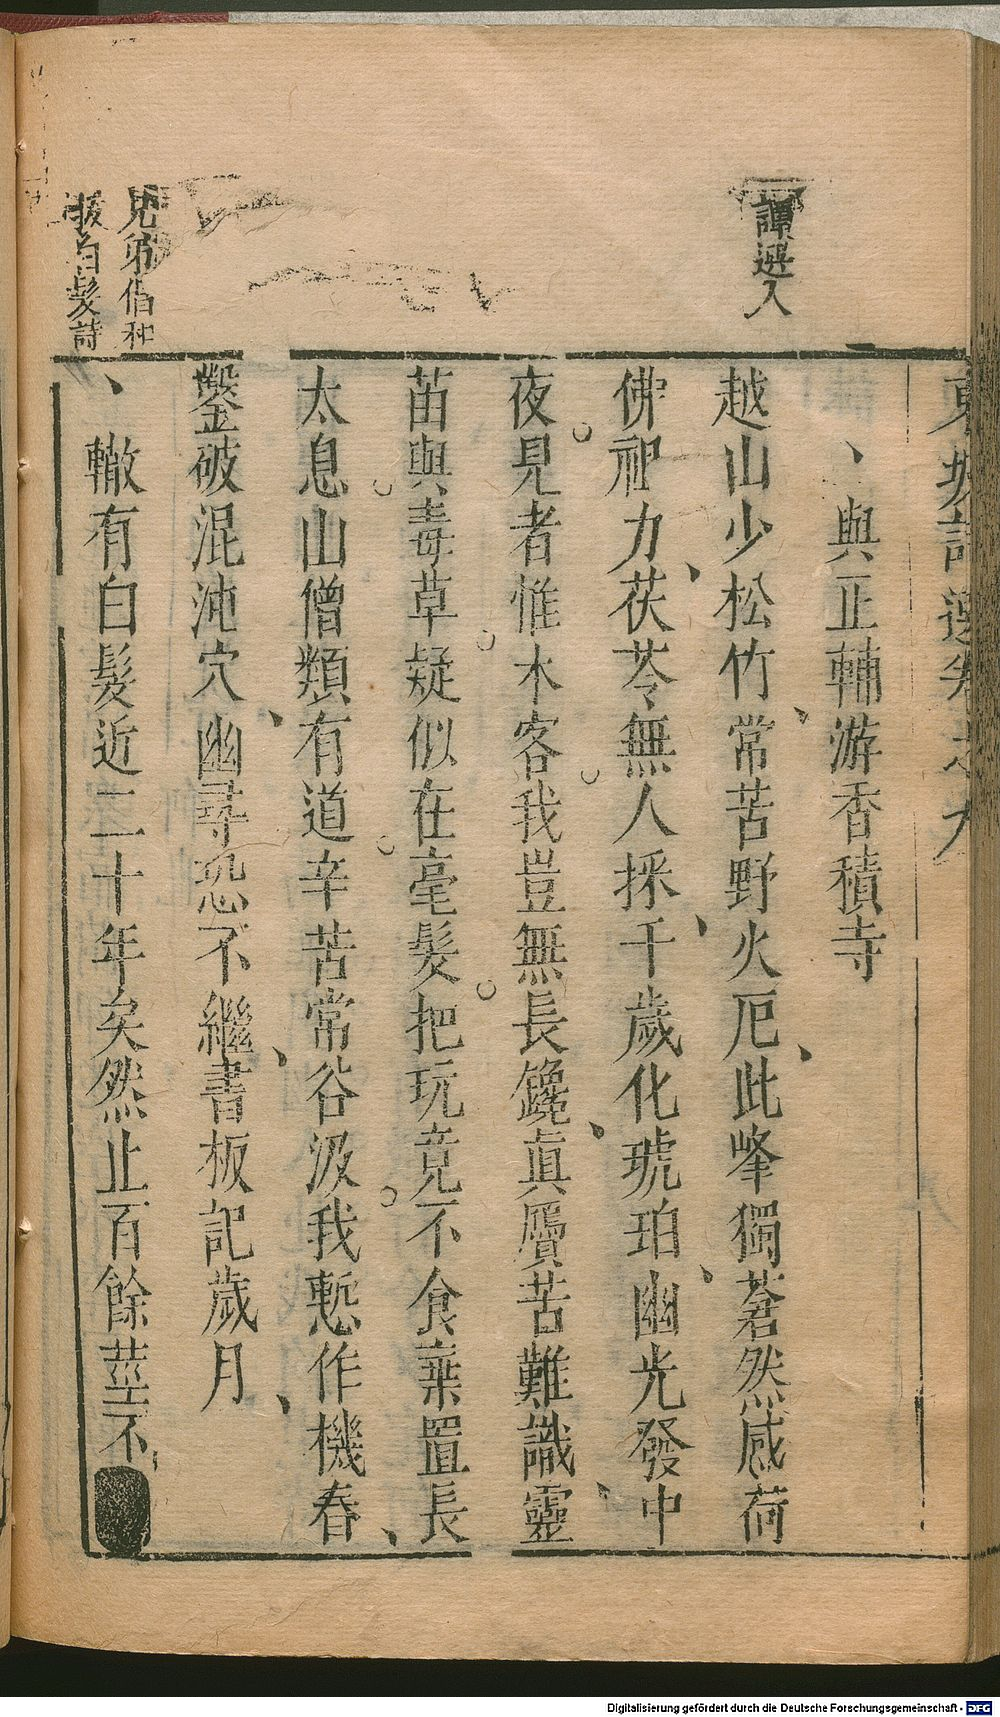 東坡詩選卷之九
與正輔游香積寺
越山少松竹常苦野火厄此峰獨蒼然感荷
佛祖力茯苓無人採千歲化琥珀幽光發中
夜見者惟木客我豈無長鑱眞贗苦難識靈
苗與毒草疑似在毫髮把玩竟不食棄置長
太息山僧類有道辛苦常谷汲我慙作機舂
鑿破混沌穴幽尋恐不繼書板記歲月
轍有白髮近二十年矣然止百餘莖不
譚選入
兄弟偕和
白髮詩
Digitalisierung gefördert durch die Deutsche Forschungsgemeinschaft - DFG